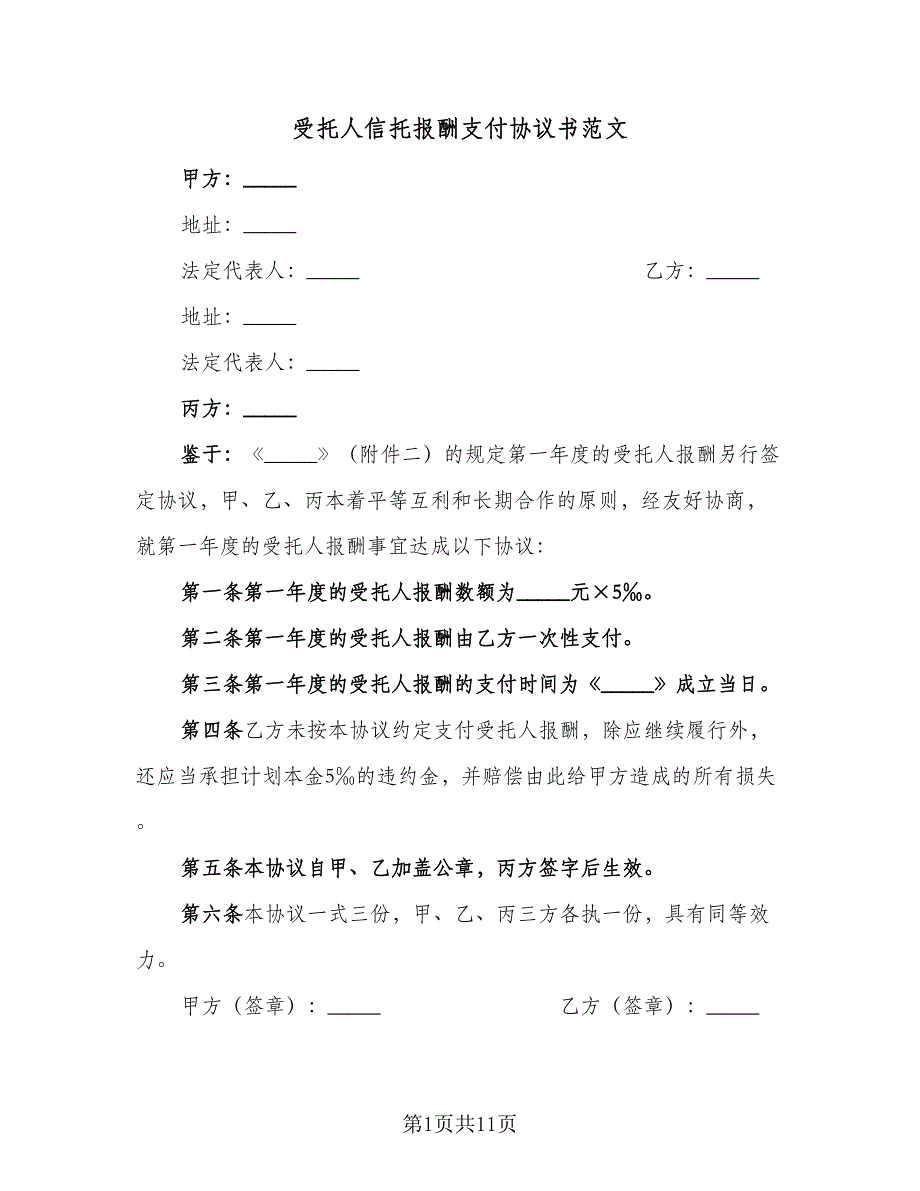 受托人信托报酬支付协议书范文
甲方：_____
地址：_____
法定代表人：_____ 乙方：_____
地址：_____
法定代表人：_____
丙方：_____
鉴于：《_____》（附件二）的规定第一年度的受托人报酬另行签
定协议，甲、乙、丙本着平等互利和长期合作的原则，经友好协商，
就第一年度的受托人报酬事宜达成以下协议：
第一条第一年度的受托人报酬数额为_____元×5‰。
第二条第一年度的受托人报酬由乙方一次性支付。
第三条第一年度的受托人报酬的支付时间为《_____》成立当日。
第四条乙方未按本协议约定支付受托人报酬，除应继续履行外，
还应当承担计划本金5‰的违约金，并赔偿由此给甲方造成的所有损失
。
第五条本协议自甲、乙加盖公章，丙方签字后生效。
第六条本协议一式三份，甲、乙、丙三方各执一份，具有同等效
力。
甲方（签章）：_____ 乙方（签章）：_____
第1页共11页